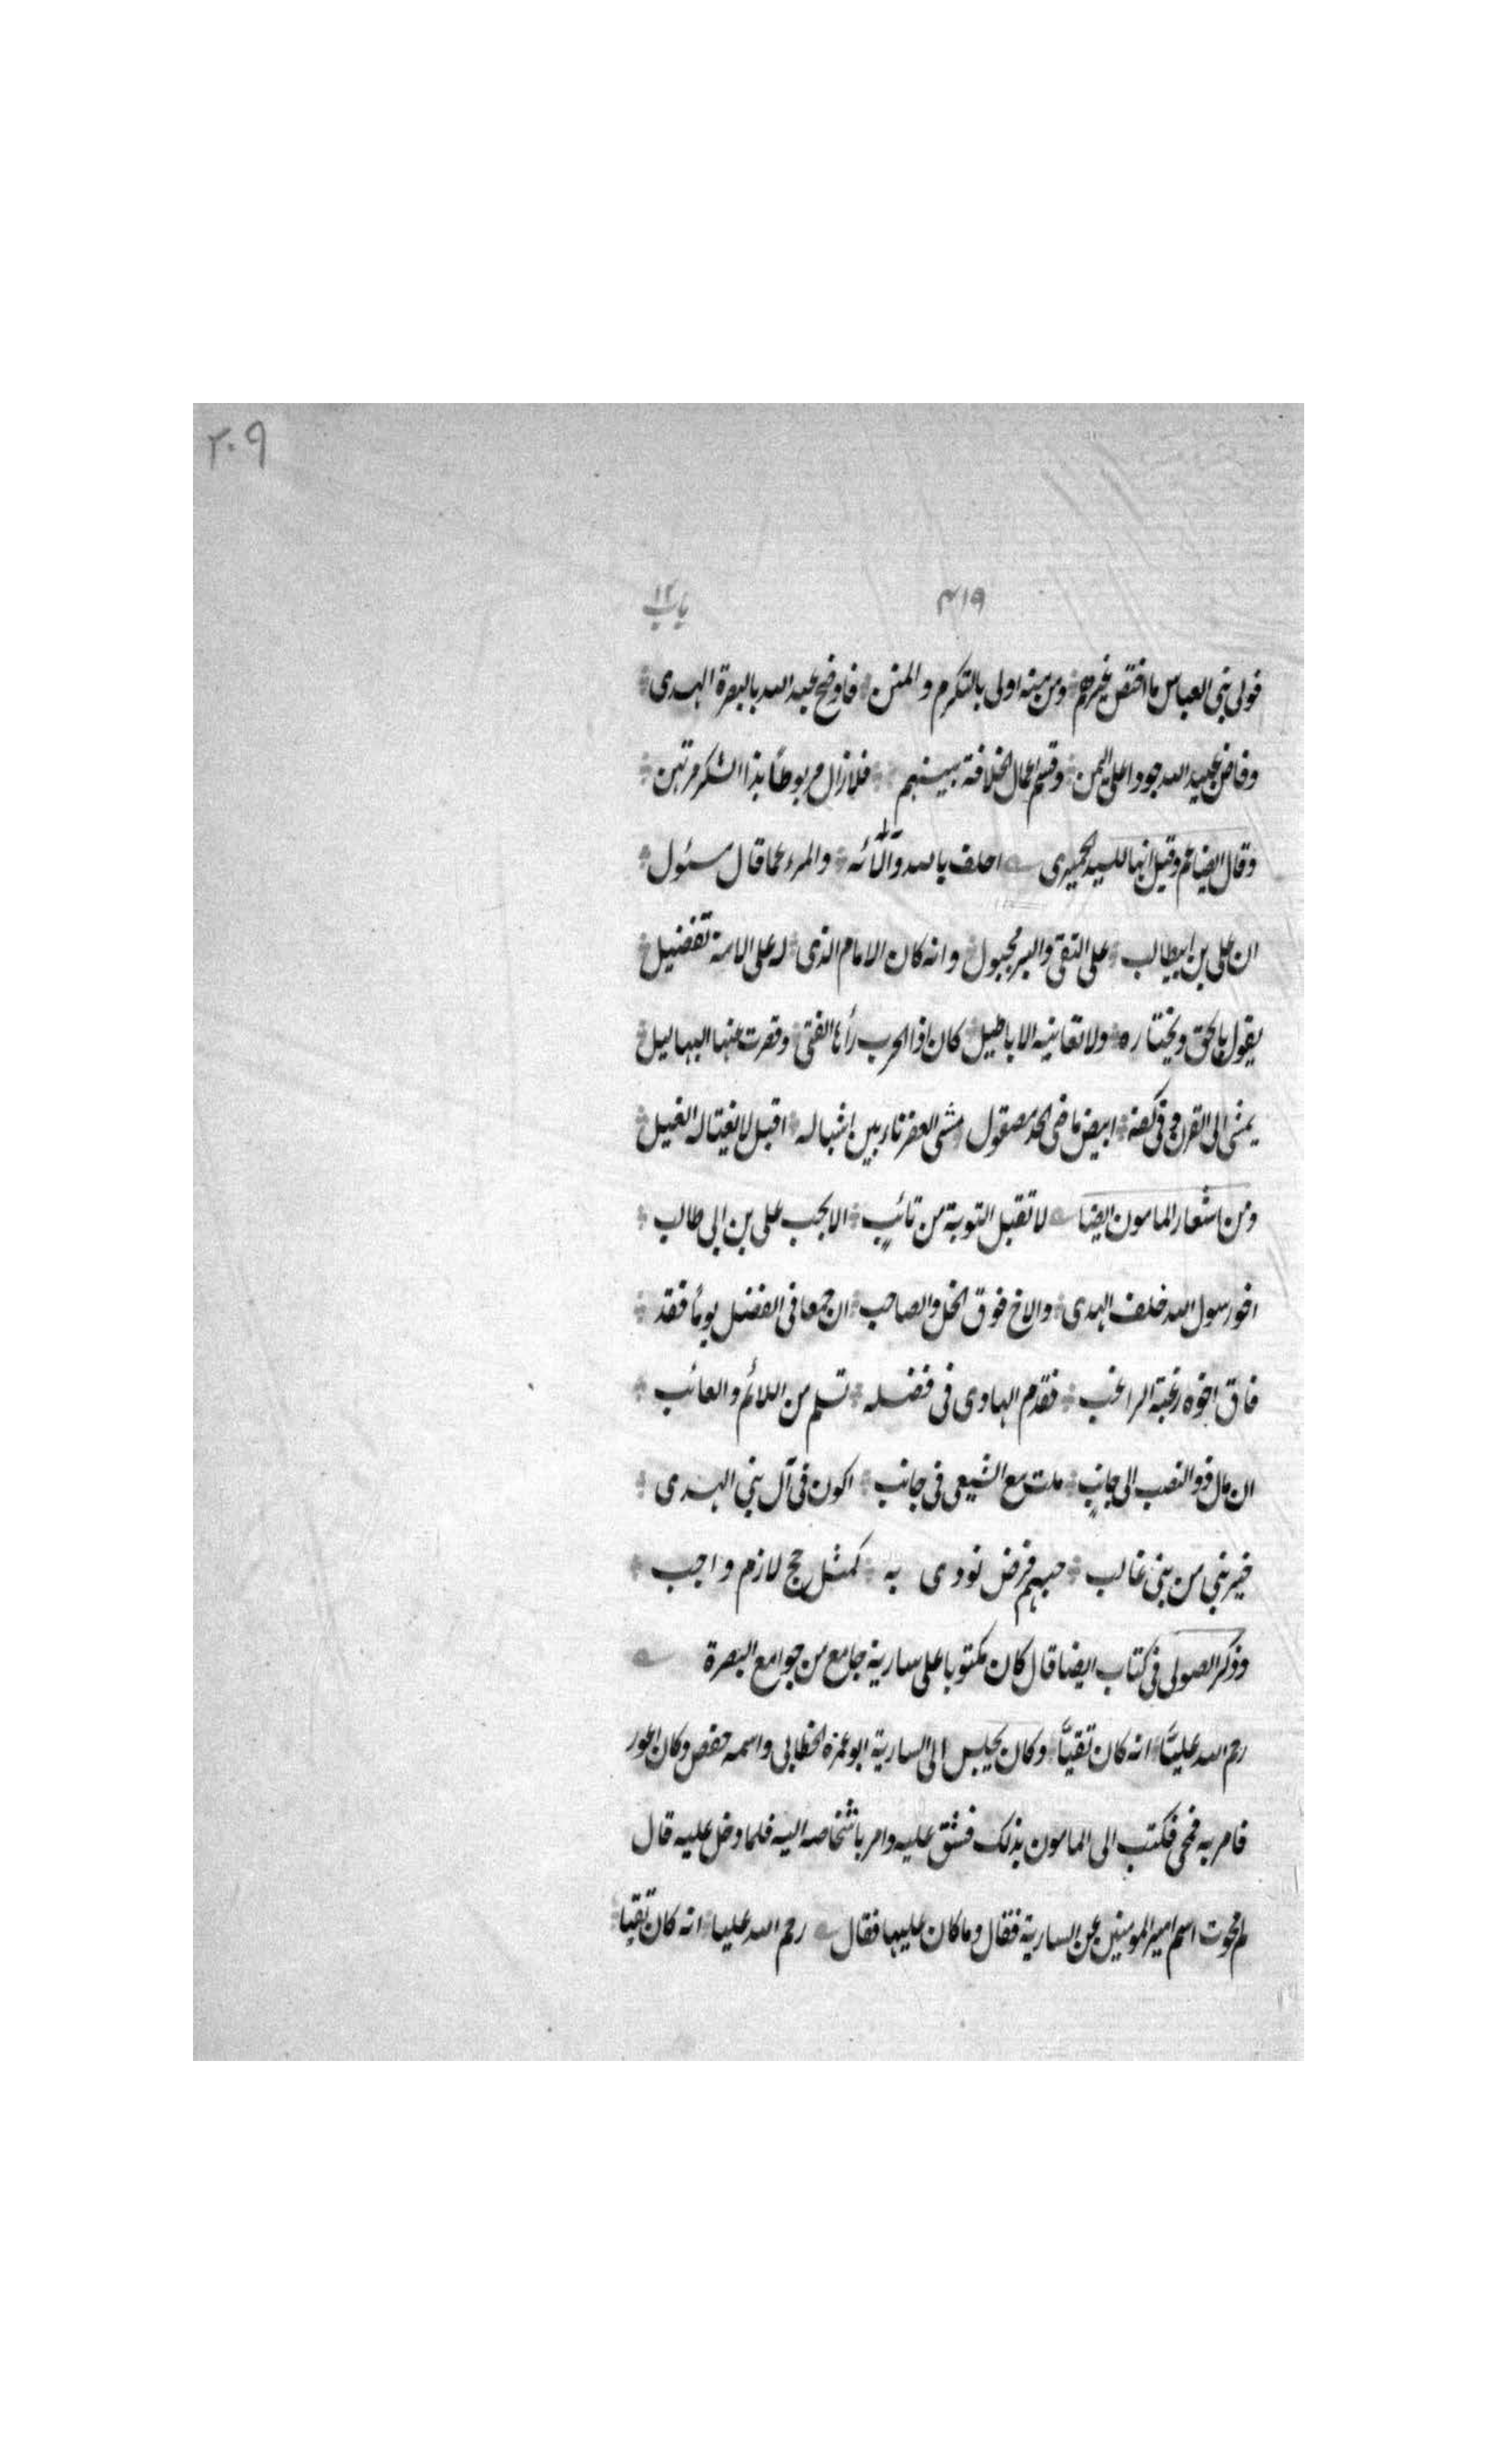 ٢٠٩
٤١٩ باب ١٢
فولى بنى العباس ما اختص غيرهم ومن منه اولى بالتكرم والمنن فاوضح عبد الله بالبصرة الهدى
وفاض عبيد الله جودا على اليمن وقسم اعمال الخلافة بينهم فلا زال مربوطا بذا الشكر مرتهن
وقال ايضا عم وقيل انها للسيد الحميرى احلف بالله وآلائه والمرء عما قال مسئول
ان على بن ابيطالب على التقى والبر مجبول وانه كان الامام الذى له على الامة تفضيل
يقول بالحق ويختاره ولا تعانيه الاباطيل كان اذا الحرب رأها الفتى وقصرت عنها البهاليل
يمشى الى القرن وفى كفه ابيض ماضى الحد مصقول مشى العفرنا بين اشباله اقبل لا يغتاله الغيل
ومن اشعار المامون ايضا لا تقبل التوبة من تائبٍ الا بحب على بن ابى طالب
اخو رسول الله خلف الهدى والاخ فوق الخل والصاحب ان جمعا فى الفضل يوماً فقد
فاق اخوه رغبة الراغب فقدم الهادى فى فضله تسلم من اللائم والعائب
ان مال ذو النصب الى جانبٍ ملت مع الشيعى فى جانب اكون فى آل بنى الهدى
خير بنى من بنى غالب حبهم فرض نودى به كمثل حج لازم واجب
وذكر الصولى فى كتاب ايضا قال كان مكتوبا على سارية جامع من جوامع البصرة
رحم الله عليّاً انه كان تقيّاً وكان يجلس الى السارية ابو عمره الخطابى واسمه حفص وكان اعور
فامر به فمحى فكتب الى المامون بذلك فشق عليه وامر باشخاصه اليه فلما دخل عليه قال
لم محوت اسم امير المومنين عن السارية فقال وما كان عليها فقال رحم الله عليا انه كان تقيا